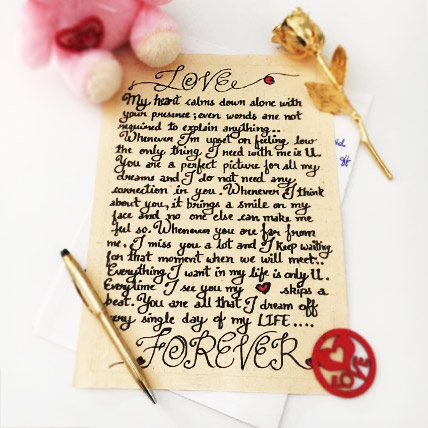 LOVE
My heart calms down alone with
your presence; even words are not
required to explain anything...
Whenever I'm upset or feeling low
the only thing I need with me is U.
You are a perfect picture for all my
dreams and I do not need any
correction in you. Whenever I think
about you, it brings a smile on my
face and no one else can make me
feel so. Whenever you are far from
me.. I miss you a lot and I keep waiting
for that moment when we will meet..
Everything I want in my life is only U.
Everytime I see you my skips a
beat. You are all that I dream off
every single day of my LIFE....
FOREVER
LOVE